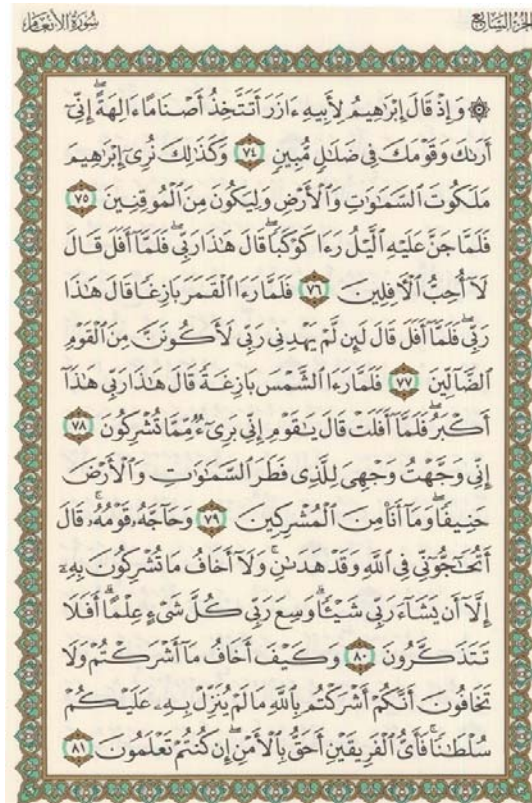 سُورَةُ الأَنْعَامِ الجُزْءُ السَّابِعُ
۞ وَإِذْ قَالَ إِبْرَٰهِيمُ لِأَبِيهِ ءَازَرَ أَتَتَّخِذُ أَصْنَامًا ءَالِهَةً ۖ إِنِّىٓ
أَرَىٰكَ وَقَوْمَكَ فِى ضَلَٰلٍ مُّبِينٍ ٧٤ وَكَذَٰلِكَ نُرِىٓ إِبْرَٰهِيمَ
مَلَكُوتَ ٱلسَّمَٰوَٰتِ وَٱلْأَرْضِ وَلِيَكُونَ مِنَ ٱلْمُوقِنِينَ ٧٥
فَلَمَّا جَنَّ عَلَيْهِ ٱلَّيْلُ رَءَا كَوْكَبًا ۖ قَالَ هَٰذَا رَبِّى ۖ فَلَمَّآ أَفَلَ قَالَ
لَآ أُحِبُّ ٱلْءَافِلِينَ ٧٦ فَلَمَّا رَءَا ٱلْقَمَرَ بَازِغًا قَالَ هَٰذَا
رَبِّى ۖ فَلَمَّآ أَفَلَ قَالَ لَئِن لَّمْ يَهْدِنِى رَبِّى لَأَكُونَنَّ مِنَ ٱلْقَوْمِ
ٱلضَّآلِّينَ ٧٧ فَلَمَّا رَءَا ٱلشَّمْسَ بَازِغَةً قَالَ هَٰذَا رَبِّى هَٰذَآ
أَكْبَرُ ۖ فَلَمَّآ أَفَلَتْ قَالَ يَٰقَوْمِ إِنِّى بَرِىٓءٌ مِّمَّا تُشْرِكُونَ ٧٨
إِنِّى وَجَّهْتُ وَجْهِىَ لِلَّذِى فَطَرَ ٱلسَّمَٰوَٰتِ وَٱلْأَرْضَ
حَنِيفًا ۖ وَمَآ أَنَا۠ مِنَ ٱلْمُشْرِكِينَ ٧٩ وَحَآجَّهُۥ قَوْمُهُۥ ۚ قَالَ
أَتُحَٰٓجُّوٓنِّى فِى ٱللَّهِ وَقَدْ هَدَىٰنِ ۚ وَلَآ أَخَافُ مَا تُشْرِكُونَ بِهِۦٓ
إِلَّآ أَن يَشَآءَ رَبِّى شَيْـًٔا ۗ وَسِعَ رَبِّى كُلَّ شَىْءٍ عِلْمًا ۗ أَفَلَا
تَتَذَكَّرُونَ ٨٠ وَكَيْفَ أَخَافُ مَآ أَشْرَكْتُمْ وَلَا
تَخَافُونَ أَنَّكُمْ أَشْرَكْتُم بِٱللَّهِ مَا لَمْ يُنَزِّلْ بِهِۦ عَلَيْكُمْ
سُلْطَٰنًا ۚ فَأَىُّ ٱلْفَرِيقَيْنِ أَحَقُّ بِٱلْأَمْنِ ۖ إِن كُنتُمْ تَعْلَمُونَ ٨١